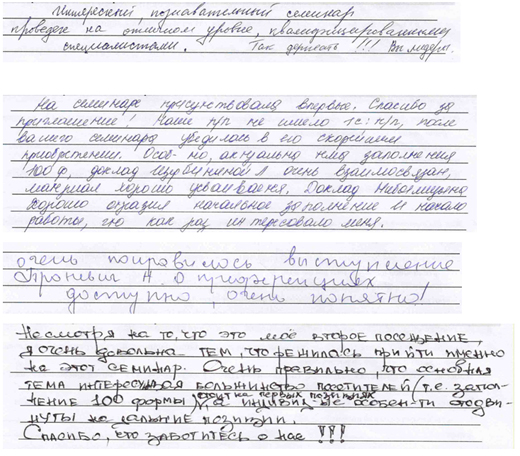 Интересный, познавательный семинар
проведен на отличном уровне, квалифицированными
специалистами. Так держать !!! Вы лидеры.
На семинаре присутствовала впервые. Спасибо за
приглашение! Наше п/п не имело 1С:п/п, после
вашего семинара убедилась в его скорейшем
приобретении. Особ-но, актуальна тема заполнения
100ф, доклад очень взаимосвязан,
материал хорошо усваивается. Доклад
хорошо отразил начальное заполнение и начало
работы, что как раз интересовало меня.
очень понравилось выступление
Проневич Н. О преференциях
доступно, очень понятно!
Несмотря на то, что это моё второе посещение,
я очень довольна тем, что решилась прийти именно
на этот семинар. Очень правильно, что основная
тема интересующая большинство посетителей (т.е. запол-
нение 100 формы) стоит на первых позициях, а индивид-ые особен-ти отодви-
нуты на дальние позиции.
Спасибо, что заботитесь о нас !!!